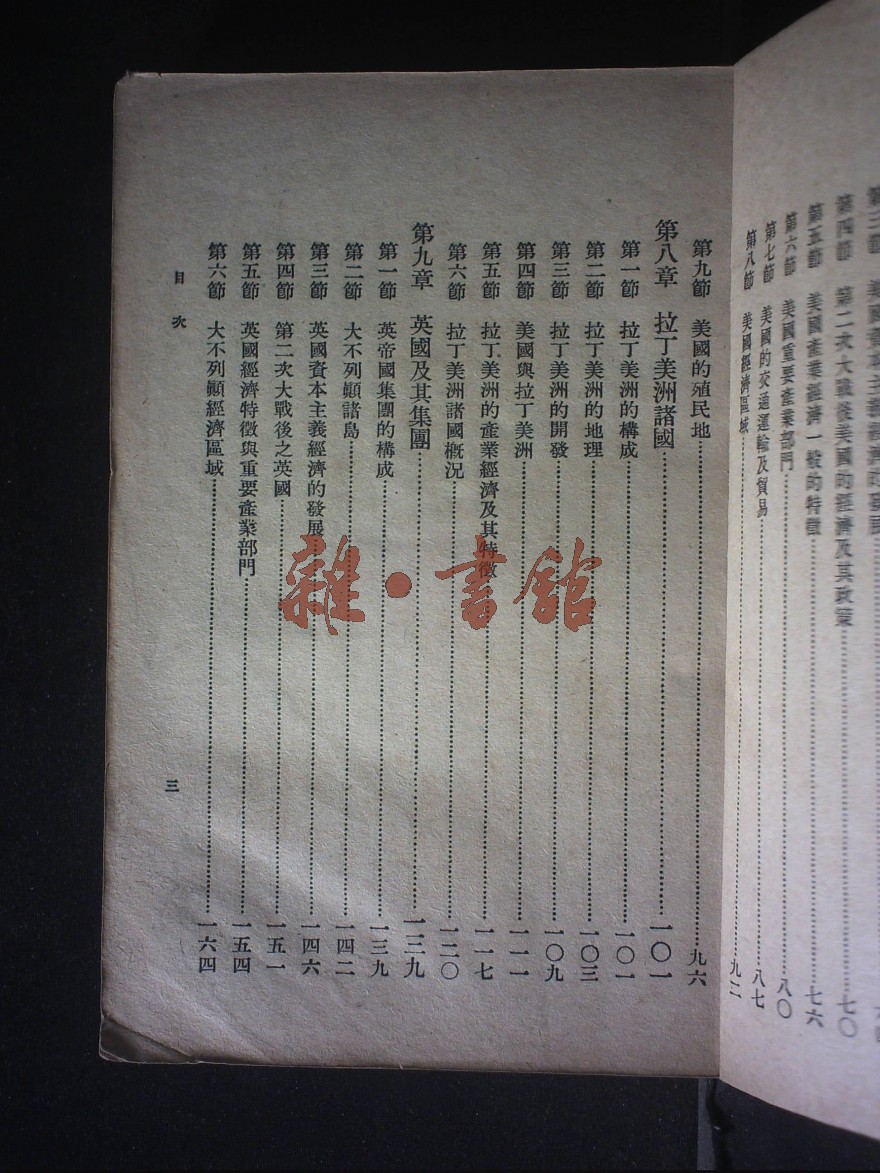 第四節　第二次大戰後美國的經濟及其政策……七〇
第五節　美國產業經濟一般的特徵……七六
第六節　美國重要產業部門……八〇
第七節　美國的交通運輸及貿易……八七
第八節　美國經濟區域……九二
第九節　美國的殖民地……九六
第八章　拉丁美洲諸國……一〇一
第一節　拉丁美洲的構成……一〇一
第二節　拉丁美洲的地理……一〇三
第三節　拉丁美洲的開發……一〇九
第四節　美國與拉丁美洲……一一一
第五節　拉丁美洲的產業經濟及其特徵……一一七
第六節　拉丁美洲諸國概況……一二〇
第九章　英國及其集團……一三九
第一節　英帝國集團的構成……一三九
第二節　大不列顚諸島……一四二
第三節　英國資本主義經濟的發展……一四六
第四節　第二次大戰後之英國……一五一
第五節　英國經濟特徵與重要產業部門……一五四
第六節　大不列顚經濟區域……一六四
目次
三
雜·書館